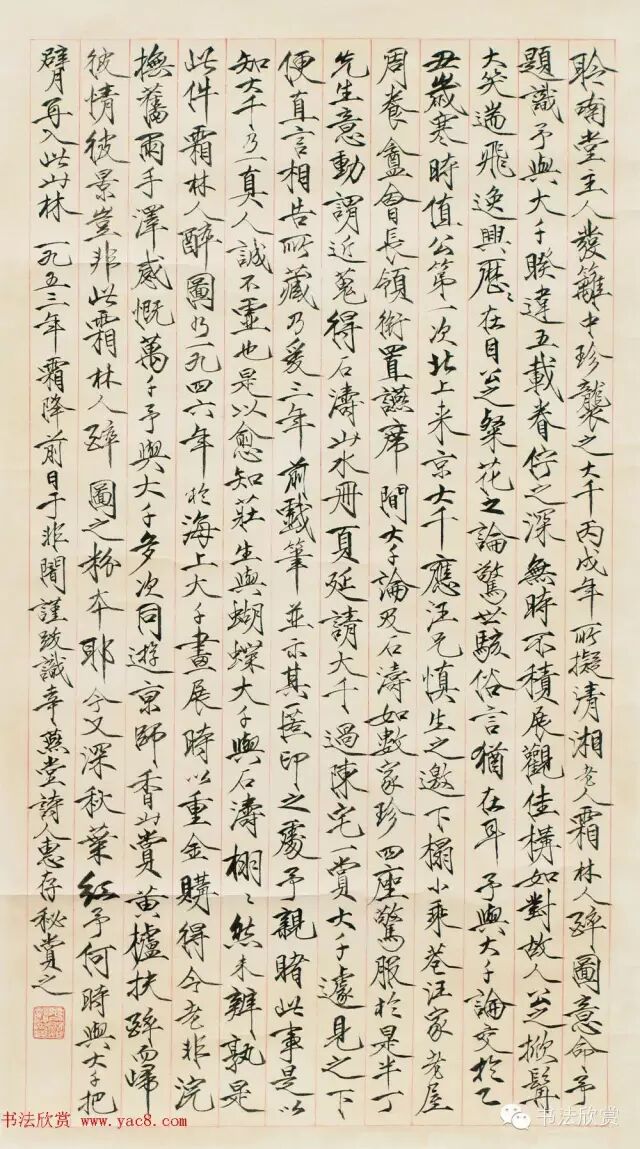 聆雨堂主人發籬中珍襲之大千丙戌年所擬清湘老人霜林人醉圖意命予
題識予與大千睽違五載眷佇之深無時不積展觀佳構如對故人益之掀髯
大笑遄飛逸興歷歷在目益之粲花之論驚世駭俗言猶在耳予與大千論交於乙
丑歲寒時值公第一次北上来京大千應汪兄慎生之邀下榻小乘巷汪家老屋
周養盦會長領銜置讌席間大千論及石濤如數家珍四座驚服於是半丁
先生意動謂近蒐得石濤山水冊頁延請大千過陳宅一賞大千遽見之下
便直言相告所藏乃爰三年前載筆並示其匿印之處予親睹此事是以
知大千乃一真人誠不虛也是以愈知莊生與蝴蝶大千與石濤栩栩然未辨孰是
此件霜林人醉圖乃一九四六年於海上大千畫展時以重金購得今老非浣
撫舊雨手澤感慨萬千予與大千多次同遊京師香山賞黃櫨扶醉而歸
彼情彼景豈非此霜林人醉圖之粉本耶今又深秋葉紅予何時與大千把
臂再入此山林 一九五三年霜降前日于非闇謹跋識幸熙堂詩人惠存秘賞之
书法欣赏 www.yac8.com
书法欣赏